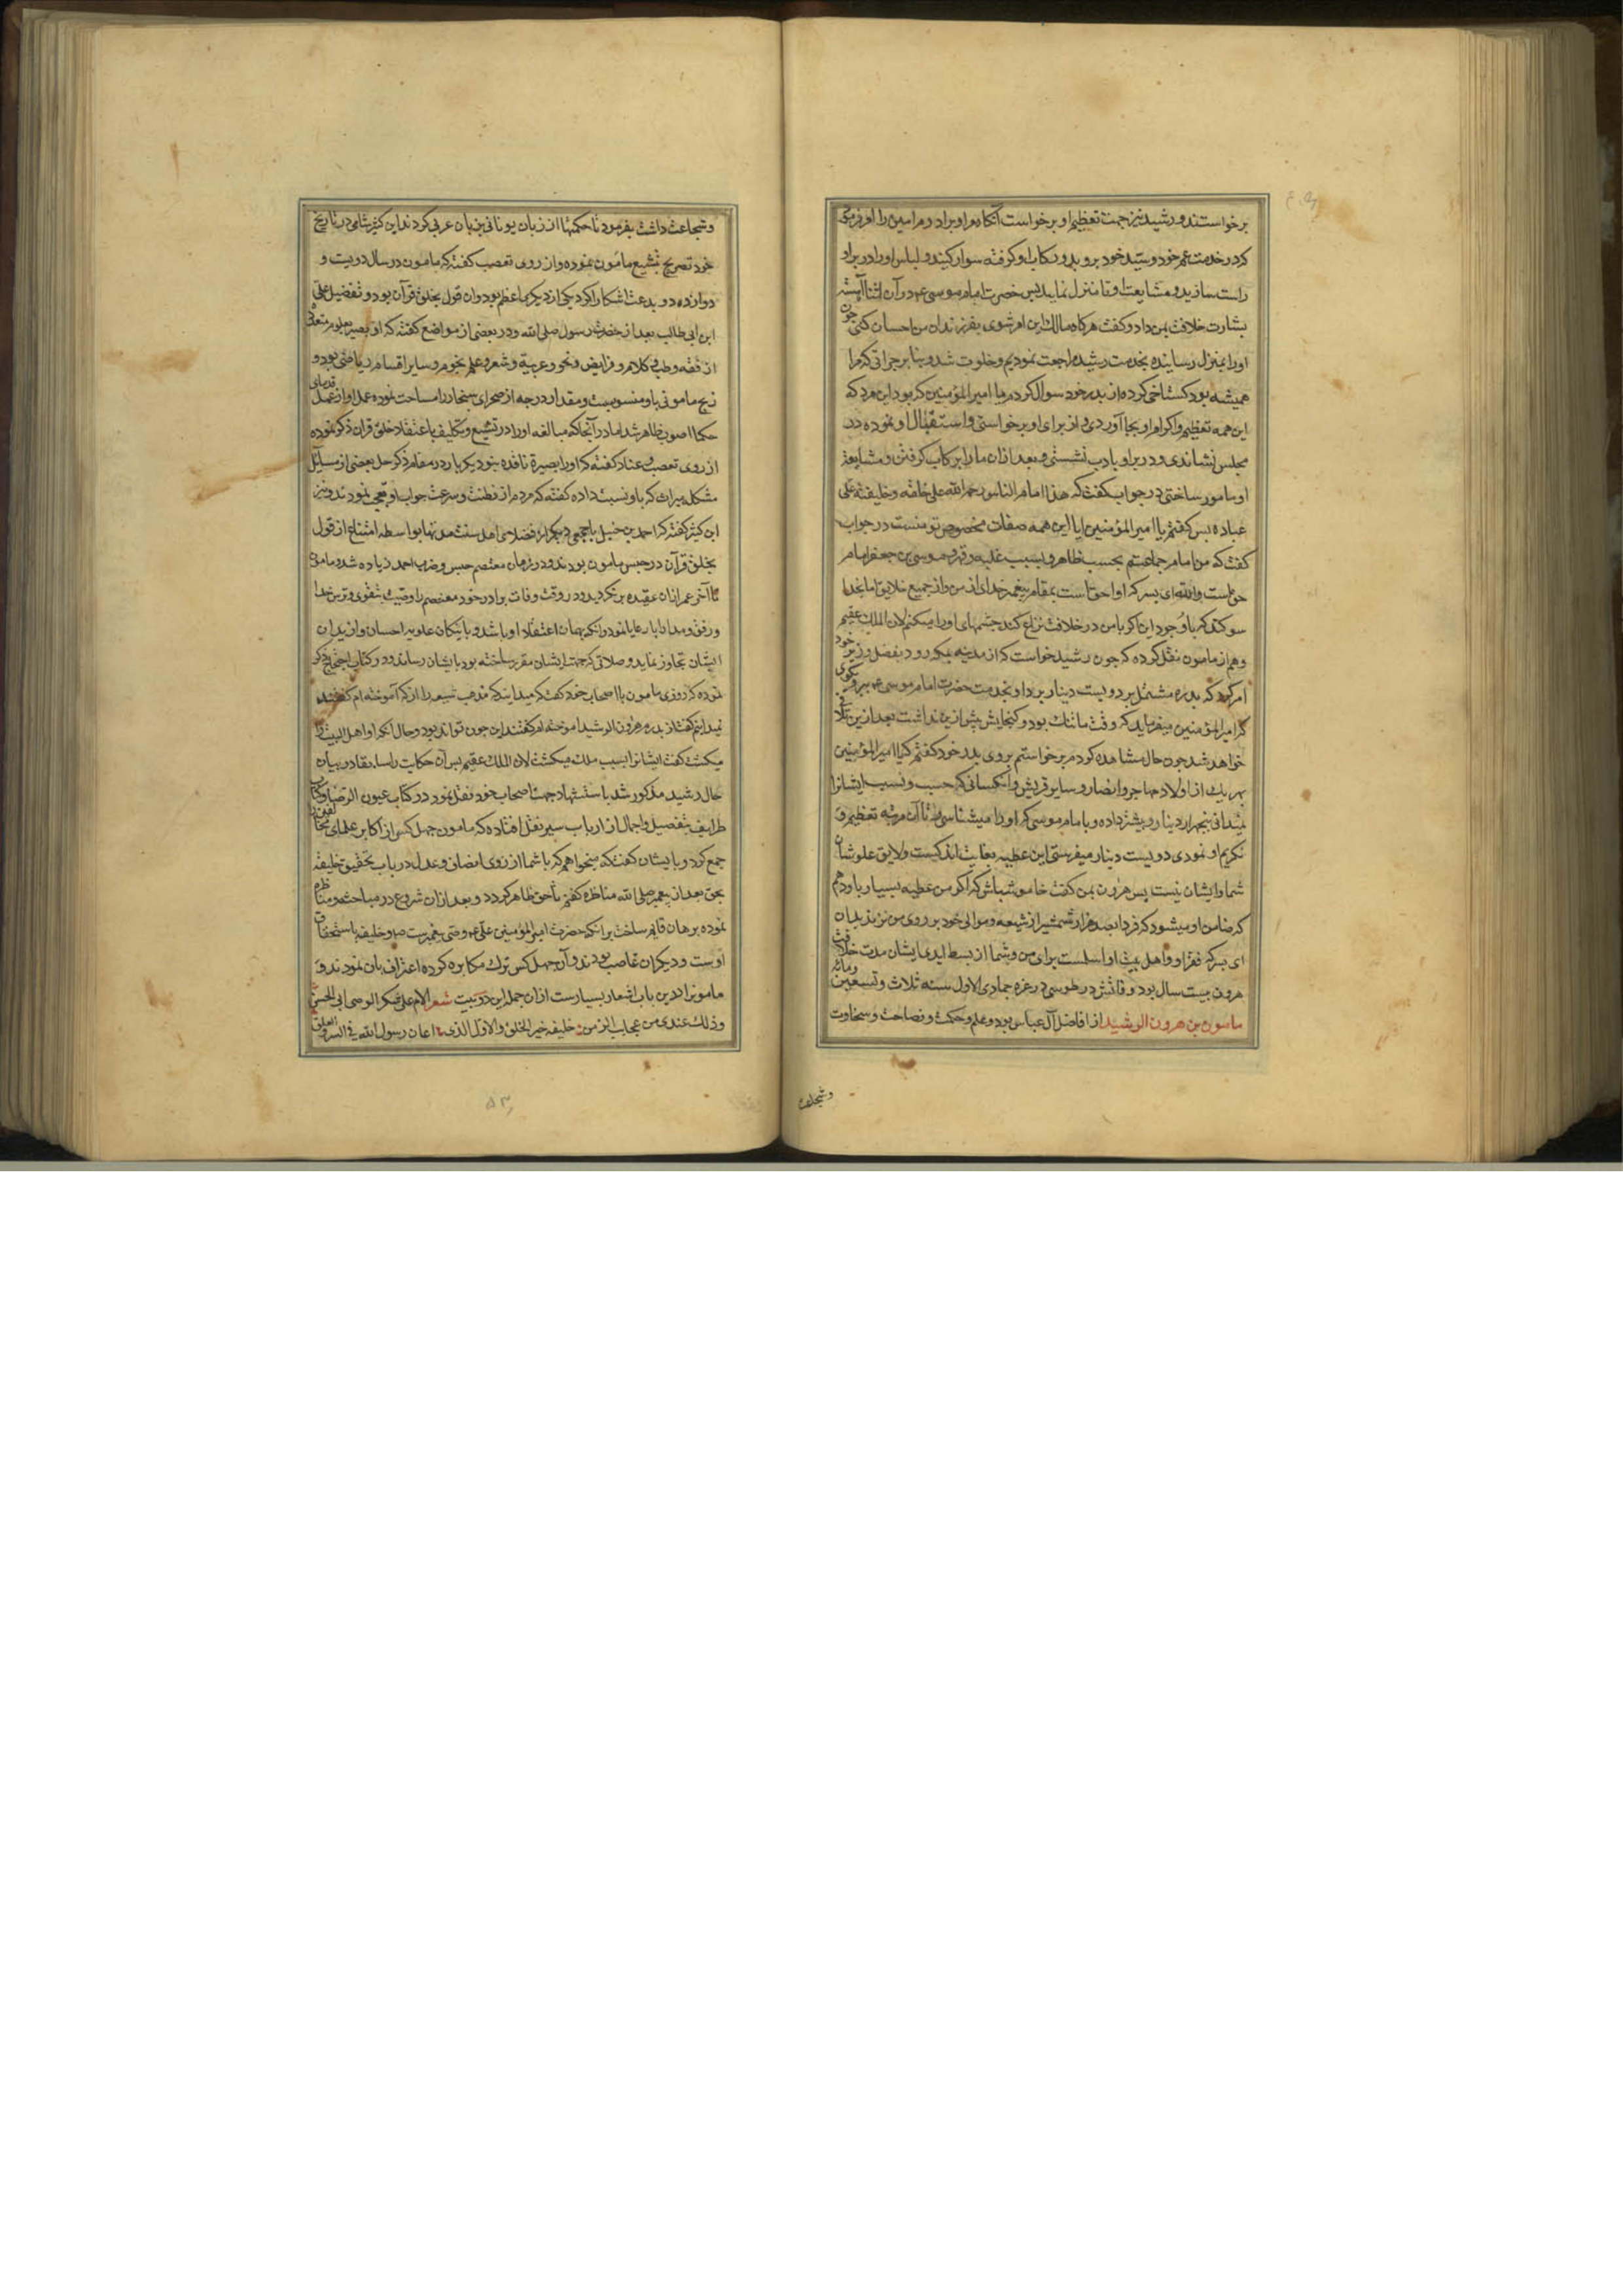 برخواستند و رشید نیز جهت تعظیم او برخواست آنگاه مرا و برادرم امین را امر فرمود
کرد در خدمت عم خود و سید خود بروید و رکاب او گرفته سوار کنید و لباس او را در بر او
راست سازید و مشایعت او تا منزل نمایید پس حضرت امام موسی ع در آن اثنا آهسته
بشارت خلافت بمن داد و کفت هرکاه مالک این امر شوی بفرزندان من احسان کنی چون
او را بمنزل رسانیده بخدمت رشید مراجعت نمودیم و خلوت شد و بنابر جراتی که مرا
همیشه بود کستاخی کرده از پدر خود سوال کردم یا امیر المؤمنین که بود این مرد که
این همه تعظیم و اکرام او بجا آوردی و از برای او برخواستی و استقبال او نموده در
مجلس نشاندی و در برابر او بادب نشستی و بعد از ان ما را برکاب کرفتن و مشایعت
او مامور ساختی در جواب کفت که هذا امام الناس و حجة الله علی خلقه و خلیفته علی
عباده پس کفتم یا امیر المؤمنین ایا این همه صفات مخصوص تو نیست در جواب
کفت که من امام جماعتم بحسب ظاهر و بسبب غلبه و قهر و موسی بن جعفر امام
حق است والله ای پسر که او احق است بمقام پیغمبر خدای از من و از جمیع خلایق اما بخدا
سوکند که با وجود این اکر با من در خلافت نزاع کند چشمهای او را میکنم لان الملک عقیم
و هم از مامون نقل کرده که چون رشید خواست که از مدینه بمکه رود بفضل وزیر خود
امر کرد که بدره مشتمل بر دویست دینار بردارد و بخدمت حضرت امام موسی ع ببر و بکوی
که امیر المؤمنین میفرماید که وقت ما تنک بود و کنجایش بیش ازین نداشت بعد ازین تلافی
خواهد شد چون حال مشاهده کردم برخواستم بروی پدر خود کفتم که یا امیر المؤمنین
بهر یک از اولاد مهاجر و انصار و سایر قریش و انکسانی که حسب و نسب ایشانرا
نمیدانی پنجهزار دینار و بیشتر داده و با امام موسی که او را میشناسی تا آن مرتبه تعظیم و
تکریم او نمودی دویست دینار میفرستی این عطیه بغایت اندکست و لایق علو شان
شما و ایشان نیست پس هرون بمن کفت خاموش باش که اکر من عطیه بسیار باو دهم
که ضامن او میشود که فردا بصد هزار شمشیر از شیعه و موالی خود بر روی من نزند بدان
ای پسر که فقر او و اهل بیت او اسلمست برای من و شما از بسط ایدی ایشان مدت خلافت
هرون بیست سال بود و فاتش در طوس در غره جمادی الاول سنه ثلاث و تسعین و مائه
مامون بن هرون الرشید از افاضل آل عباس بود و علم و حکمت و فصاحت و سخاوت
و شجاعت
و شجاعت داشت بفرمود تا حکمتها از زبان یونانی بزبان عربی کردند ابن کثیر شامی در تاریخ
خود تصریح بتشیع مامون نموده و از روی تعصب کفته که مامون در سال دویست و
دوازده دو بدعت اشکارا کرد که یکی از دیکری اعظم بود و ان قول بخلق قرآن بود و تفضیل علی
ابن ابی طالب بعد از حضرت رسول صلی الله و در بعضی از مواضع کفته که او بصیر بعلوم متعدده
از فقه و طب و کلام و فرایض و نحو و عربیة و شعر و علم نجوم و سایر اقسام ریاضی بود و
زیج مامونی باو منسوبست و مقدار درجه از صحرای سنجار را مساحت نموده عمل او از عمل قدمای
حکما اصوب ظاهر شد اما در آنجا که مبالغه او را در تشیع و تکلیف باعتقاد خلق قران ذکر نموده
از روی تعصب و عناد کفته که او را بصیرة نافده نبود دیکر بار در مقام ذکر حل بعضی از مسایل
مشکله میراث که باو نسبت داده کفته که مردم از فطنت و سرعت جواب او تعجب نمودند و نیز
ابن کثیر کفته که احمد بن حنبل با جمعی دیکر از فضلای اهل سنت مدتها بواسطه امتناع از قول
بخلق قرآن در حبس مامون بودند و در زمان معتصم حبس و ضرب احمد زیاده شد و مامون
تا آخر عمر از ان عقیده برنکردید و در وقت وفات برادر خود معتصم را وصیت بتقوی و ترس خدا
و رفق و مدارا با رعایا نمود و انکه بهمان اعتقاد او باشد و با نیکان علویه احسان و از بدان
ایشان تجاوز نماید و صلاتی که جهت ایشان مقرر ساخته بود بایشان رساند و در کتاب احتجاج ذکر
نموده که روزی مامون با اصحاب خود کفت که میدانید که مذهب تشیع را از که آموخته ام کفتند
نمیدانیم کفت از پدرم هرون الرشید اموخته ام کفتند این چون تواند بود و حال انکه او اهل البیت را
میکشت کفت ایشانرا بسبب ملک میکشت لان الملک عقیم پس آن حکایت را سابقا در بیان
حال رشید مذکور شد باستشهاد جهت اصحاب خود نقل نمود در کتاب عیون الرضا و کتاب
طرایف بتفصیل و اجمال از ارباب سیر نقل افتاده که مامون چهل کس از اکابر علمای مخالفین را
جمع کرد و بایشان کفت که میخواهم که با شما از روی انصاف و عدل در باب تحقیق خلیفه
بحق بعد از پیغمبر صلی الله مناظره کنم تا حق ظاهر کردد و بعد از ان شروع در مباحثه و مناظره
نموده برهان قایم ساخت بر انکه حضرت امیر المؤمنین علی ع وصی پیغمبرست ص و خلیفه باستحقاق
اوست و دیکران غاصب بودند و آن چهل کس ترک مکابره کرده اعتراف بان نمودند و
مامونرا درین باب اشعار بسیارست از ان جمله این دو بیت شعر الام علی شکر الوصی ابی الحسن
و ذلک عندی من عجایب الزمن خلیفة خیر الخلق و الاول الذی اعان رسول الله فی السر و العلن